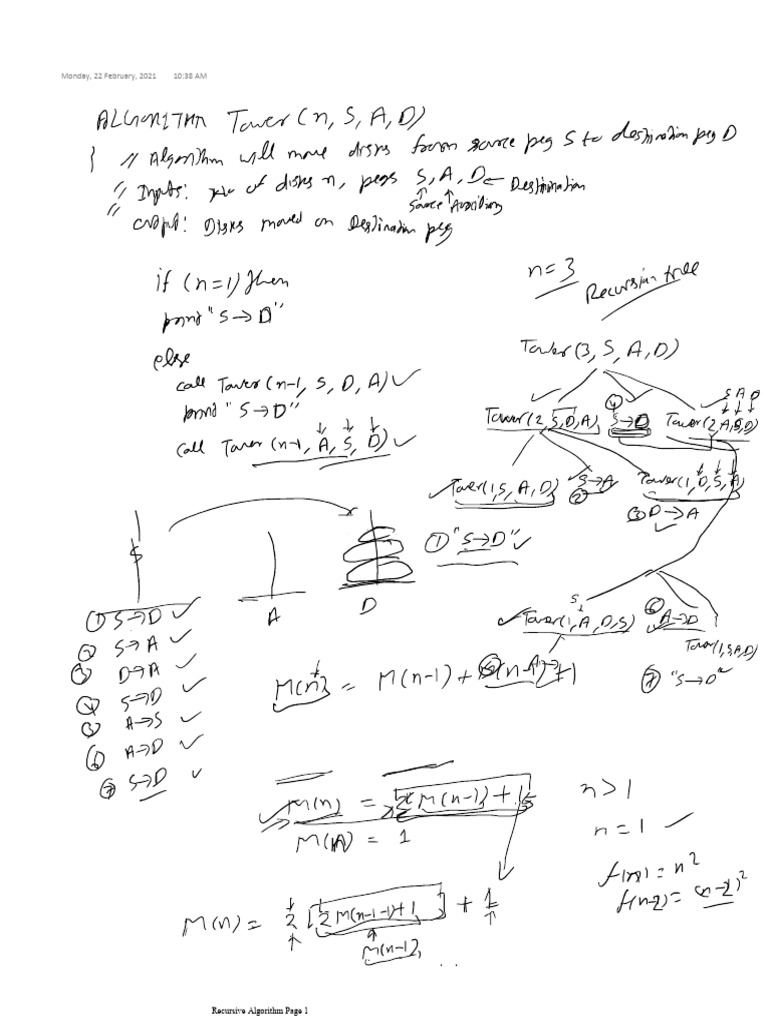 Monday, 22 February, 2021 10:38 AM
ALGORITHM Tower(n, S, A, D)
{ // Algorithm will move disks from source peg S to destination peg D
// Inputs: no of disks n, pegs S, A, D ← Destination
Source Auxiliary
// Output: Disks moved on Destination peg
if (n=1) then
print "S→D"
else
call Tower(n-1, S, D, A) ✓
print "S→D"
call Tower(n-1, A, S, D) ✓
n=3
Recursion tree
Tower(3, S, A, D)
S A D
Tower(2, S, D, A) ④ S→D Tower(2, A, S, D)
Tower(1, S, A, D) S→A ② Tower(1, D, S, A)
① "S→D" ✓
③ D→A
S
Tower(1, A, D, S) ⑥ A→D Tower(1, S, A, D)
⑦ "S→D"
S A D
① S→D ✓
② S→A ✓
③ D→A ✓
④ S→D ✓
⑤ A→S ✓
⑥ A→D ✓
⑦ S→D ✓
M(n) = M(n-1) + (n-1) + 1
M(n) = 2M(n-1) + 1 n>1
M(1) = 1 n=1 ✓
f(n) = n²
f(n-2) = (n-2)²
M(n) = 2[2M(n-1-1)+1] + 1
M(n-1),
Recursive Algorithm Page 1